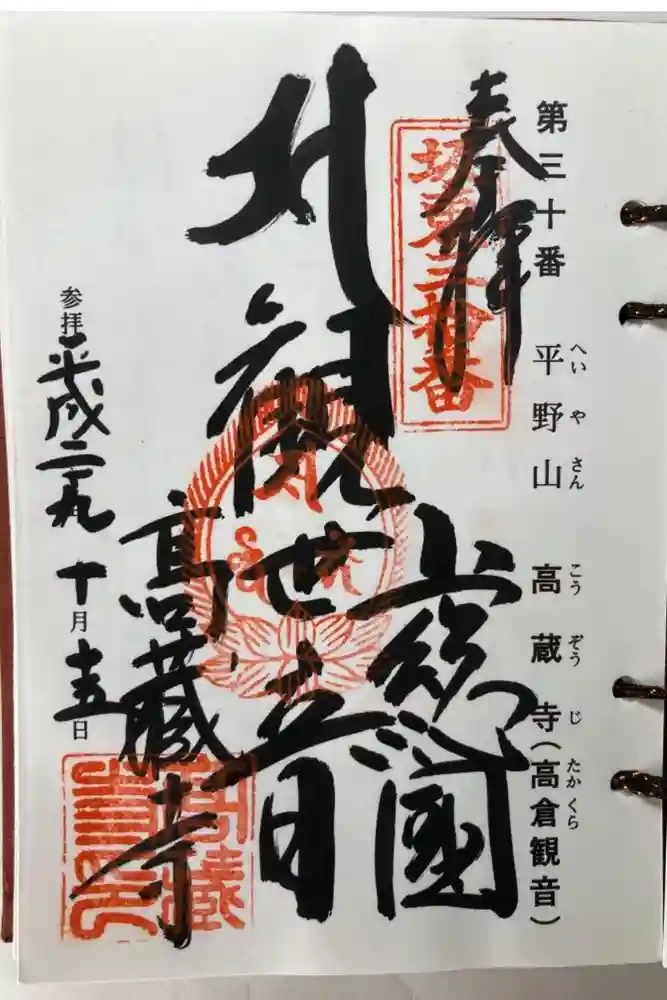 第三十番 平野山 高蔵寺(高倉観音)
へいやさん こうぞうじ たかくら
奉拝
坂東三十番
上総國
正観世音
高蔵寺
参拝 平成二十九 十月 十五日